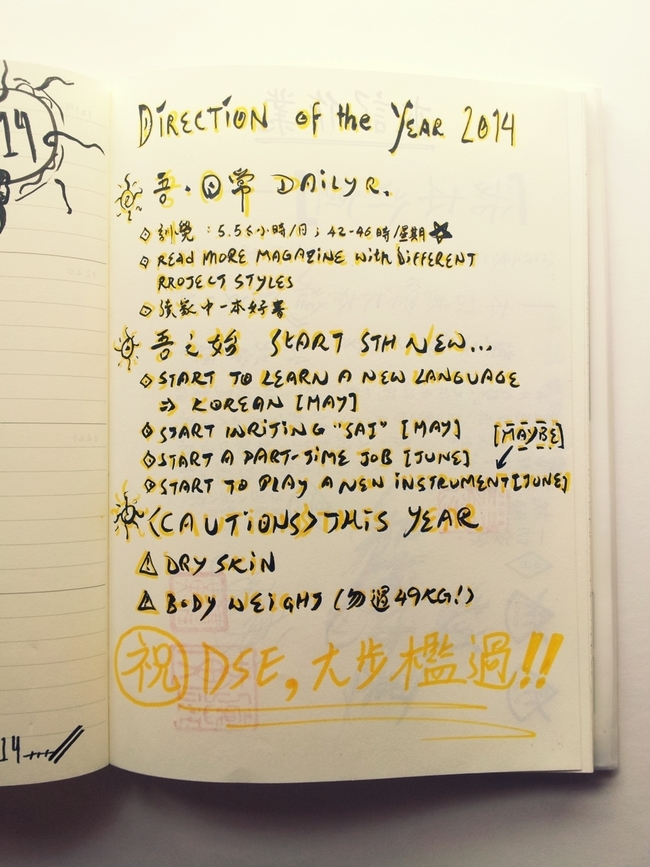 14
DIRECTION of the YEAR 2014
吾·日常 DAILY R.
訓覺:5.5-6小時/日;42-46時/星期
READ MORE MAGAZINE with DIFFERENT
PROJECT STYLES
讀家中一本好書
吾之始 START STH NEW...
START TO LEARN A NEW LANGUAGE
⇒ KOREAN [MAY]
START WRITING "SAI" [MAY] [MAYBE]
START A PART-TIME JOB [JUNE]
START TO PLAY A NEW INSTRUMENT [JUNE]
<CAUTIONS> THIS YEAR
DRY SKIN
BODY WEIGHT (勿過49KG!)
祝 DSE,大步檻過!!
14